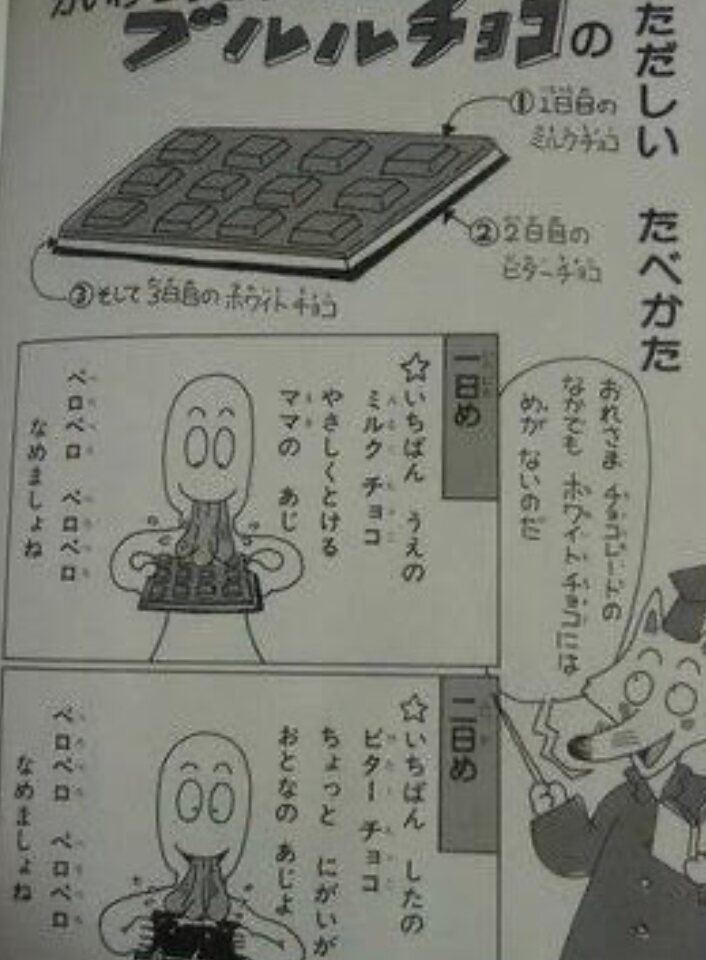 ただしい　たべかた
ブルルチョコの
①1日目の
ミルクチョコ
②2日目の
ビターチョコ
③そして3日目のホワイトチョコ
おれさま チョコレートの
なかでも ホワイトチョコには
めが ないのだ
一日め
☆いちばん うえの
ミルク チョコ
やさしくとける
ママの あじ
ペロペロ ペロペロ
なめましょね
二日め
☆いちばん したの
ビター チョコ
ちょっと にがいが
おとなの あじよ
ペロペロ ペロペロ
なめましょね